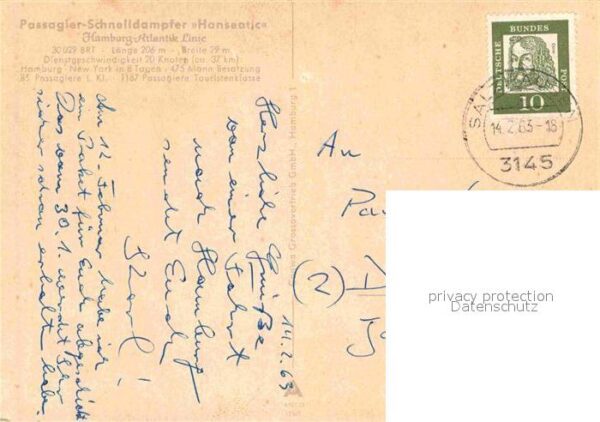 Passagier-Schnelldampfer »Hanseatic«
Hamburg-Atlantik Linie
30 029 BRT · Länge 206 m · Breite 29 m
Dienstgeschwindigkeit 20 Knoten (ca. 37 km)
Hamburg - New York in 8 Tagen · 475 Mann Besatzung
85 Passagiere I. Kl. · 1167 Passagiere Touristenklasse
14.2.63
Herzliche Grüße
von einer Fahrt
nach Hamburg
sendet Euch
Karl!
Am 12. Februar habe ich
ein Paket für Euch abgeschickt
Das vom 30.1. werdet Ihr
sicher schon erhalten haben.
DEUTSCHE BUNDES POST
10
14.2.63-18
3145
An
(2)
GmbH, Hamburg 1
privacy protection
Datenschutz